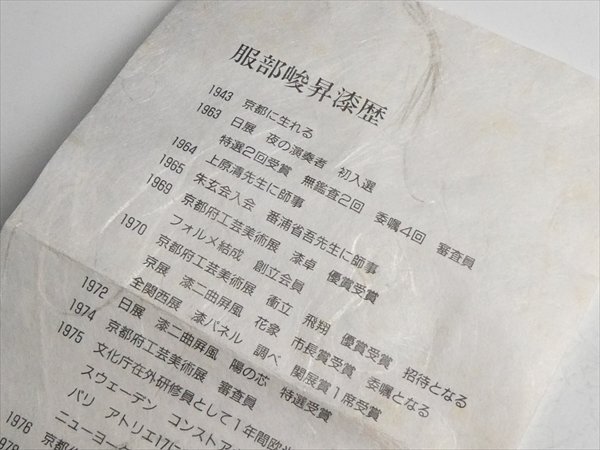 服部峻昇漆歴
1943 京都に生れる
1963 日展 夜の演奏者 初入選
特選2回受賞 無鑑査2回 委嘱4回 審査員
1964 上原清先生に師事
1965 朱玄会入会 番浦省吾先生に師事
1969 京都府工芸美術展 漆卓 優賞受賞
フォルメ結成 創立会員
1970 京都府工芸美術展 衝立 飛翔 優賞受賞 招待となる
京展 漆二曲屏風 花象 市長賞受賞 委嘱となる
全関西展 漆パネル 調べ 関展賞1席受賞
1972 日展 漆二曲屏風 陽の芯 特選受賞
1974 京都府工芸美術展 審査員
1975 文化庁在外研修員として1年間欧
スウェーデン コンストア
パリ アトリエ17に
ニューヨーク
1976 京都